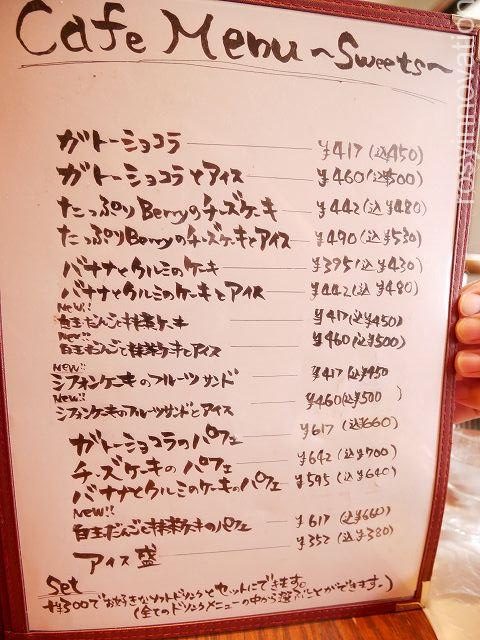 Cafe Menu ~Sweets~
ガトーショコラ ¥417(込¥450)
ガトーショコラとアイス ¥460(込¥500)
たっぷりBerryのチーズケーキ ¥442(込¥480)
たっぷりBerryのチーズケーキとアイス ¥490(込¥530)
バナナとクルミのケーキ ¥395(込¥430)
バナナとクルミのケーキとアイス ¥442(込¥480)
New!!
白玉だんごと抹茶ケーキ ¥417(込¥450)
New!!
白玉だんごと抹茶ケーキとアイス ¥460(込¥500)
New!!
シフォンケーキのフルーツサンド ¥417(込¥450
New!!
シフォンケーキのフルーツサンドとアイス ¥460(込¥500)
ガトーショコラのパフェ ¥617(込¥660)
チーズケーキのパフェ ¥642(込¥700)
バナナとクルミのケーキのパフェ ¥595(込¥640)
New!!
白玉だんごと抹茶ケーキのパフェ ¥617(込¥660)
アイス盛 ¥352(込¥380)
Set
+¥300でお好きなソフトドリンクとセットにできます。
(全てのドリンクメニューの中から選ぶことができます。)
rosyinnovation